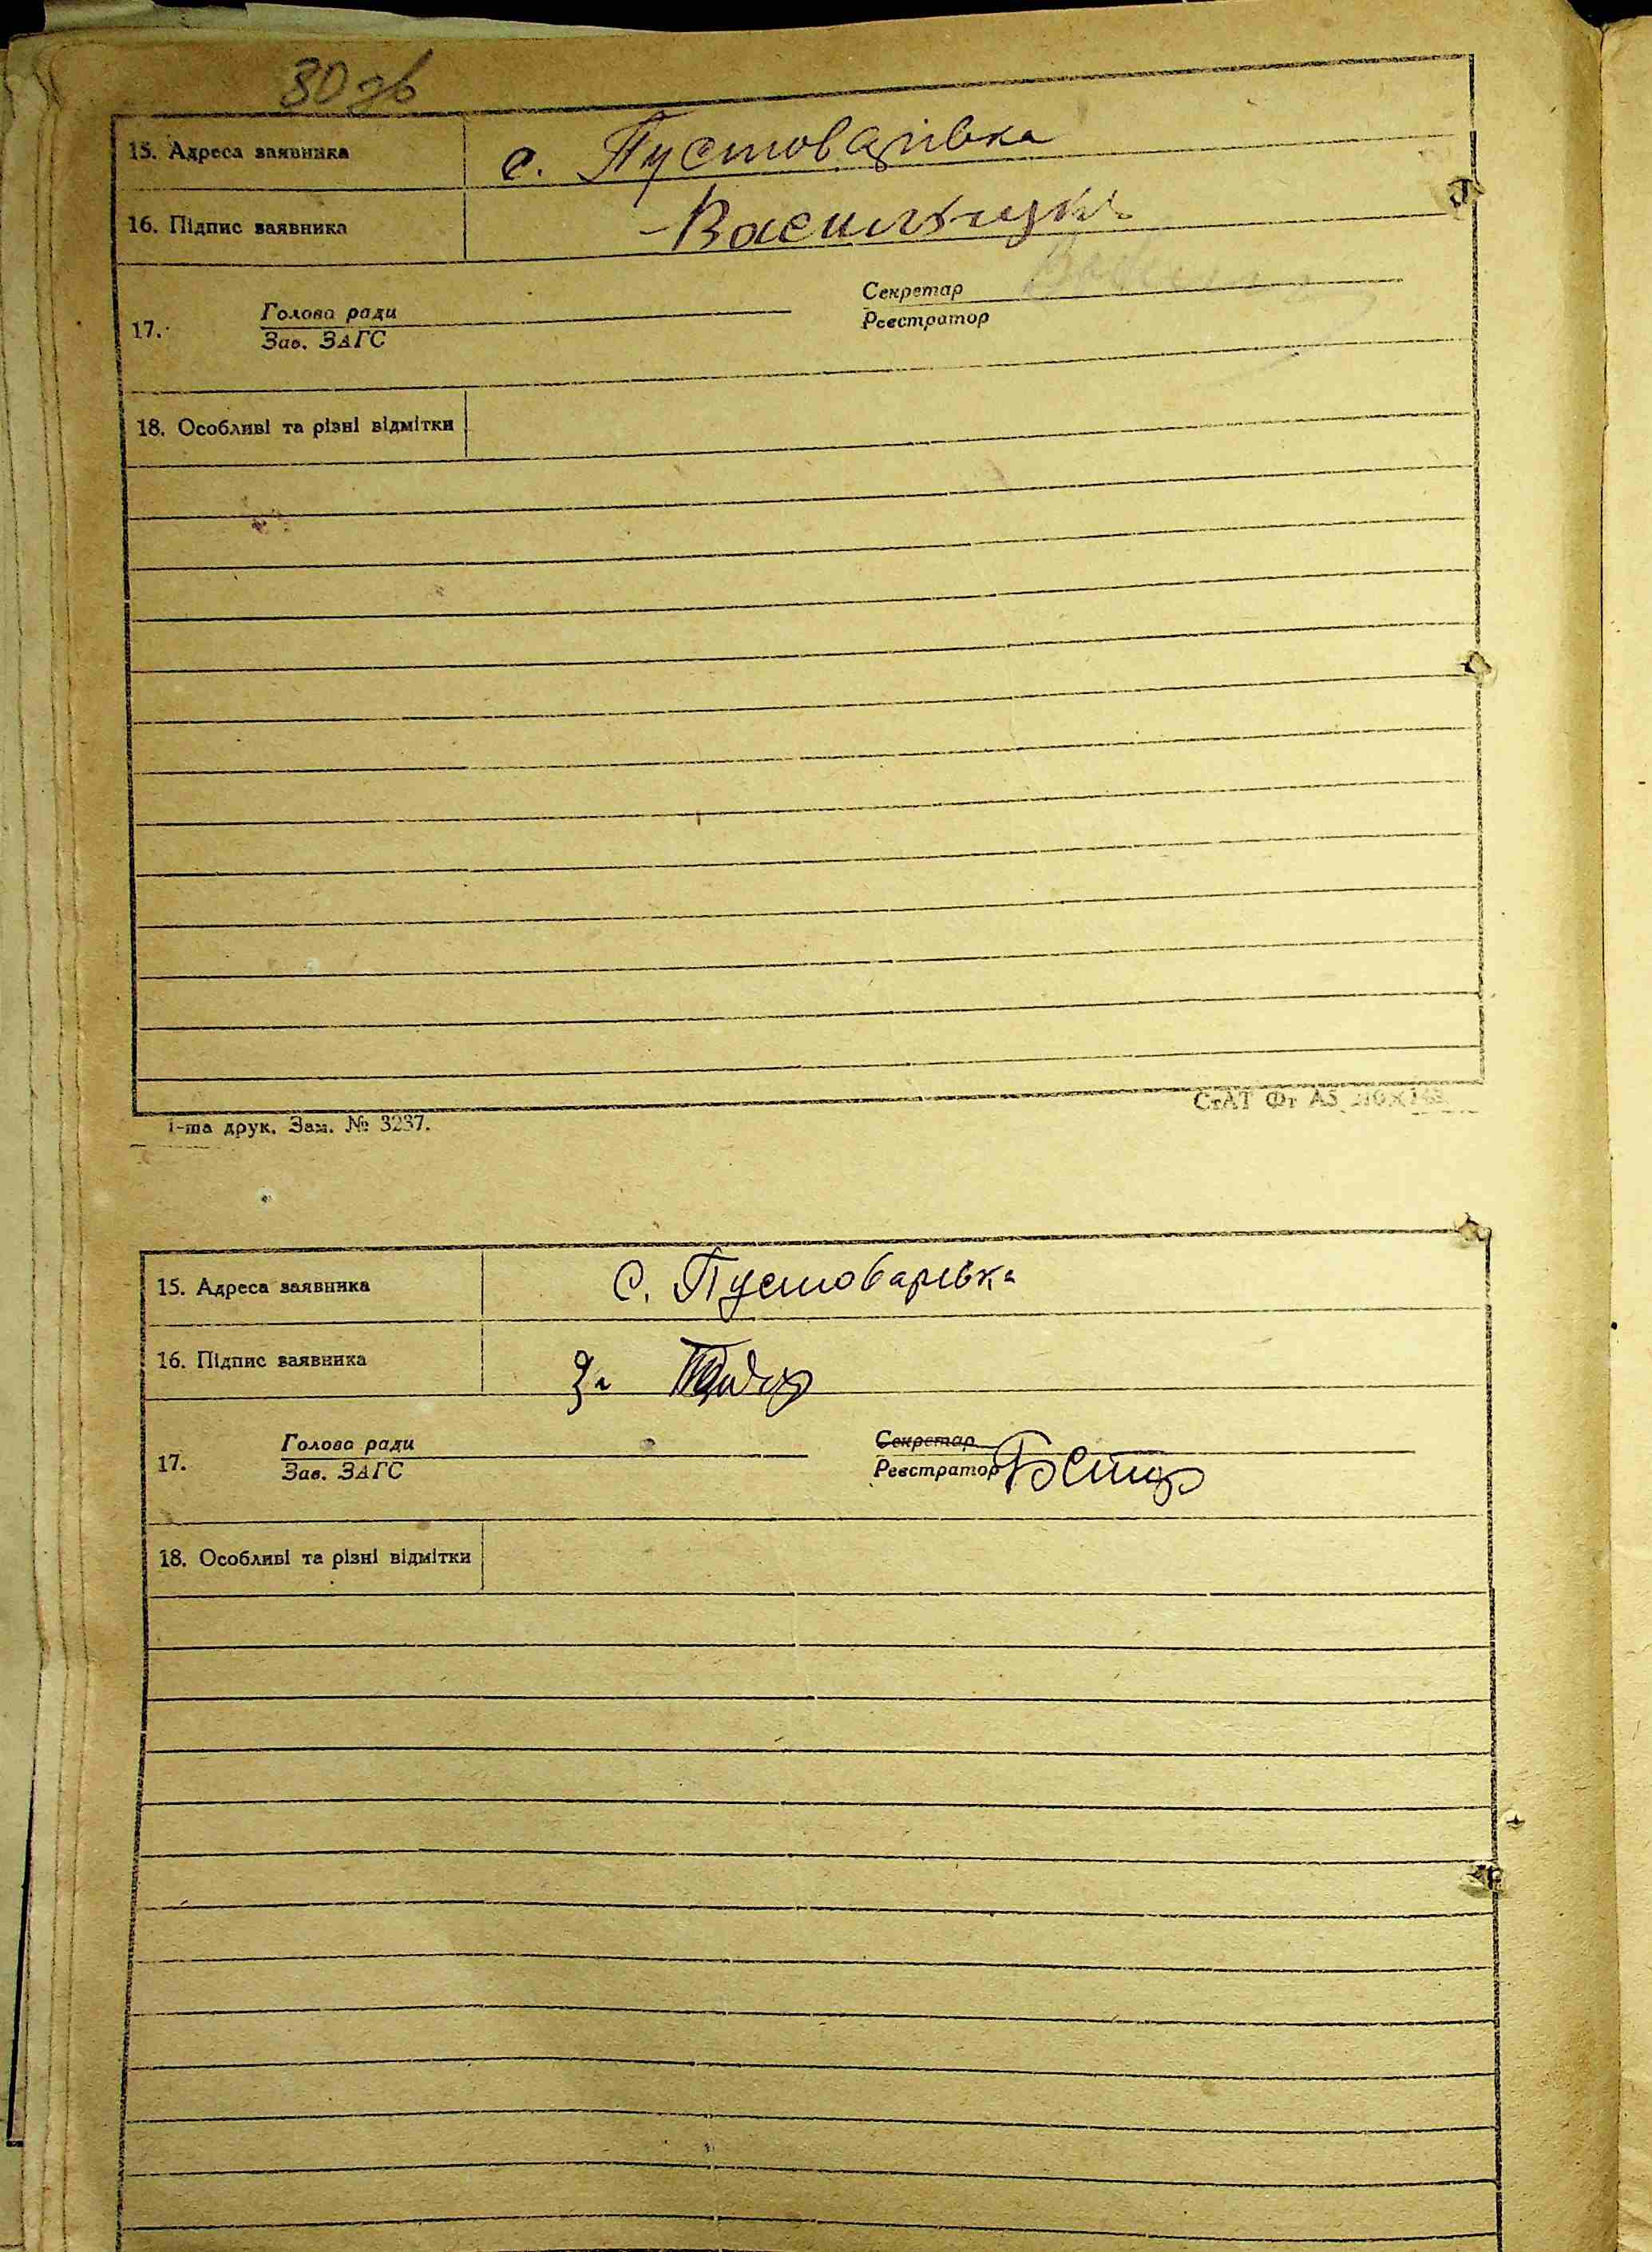 30 зв
15. Адреса заявника с. Пустоварівка
16. Підпис заявника
17. Голова ради Секретар
Зав. ЗАГС Реєстратор
18. Особливі та різні відмітки
1-ша друк. Зам. № 3237. СтАТ Фт А5
15. Адреса заявника С. Пустоварівка
16. Підпис заявника За
17. Голова ради Секретар
Зав. ЗАГС Реєстратор
18. Особливі та різні відмітки